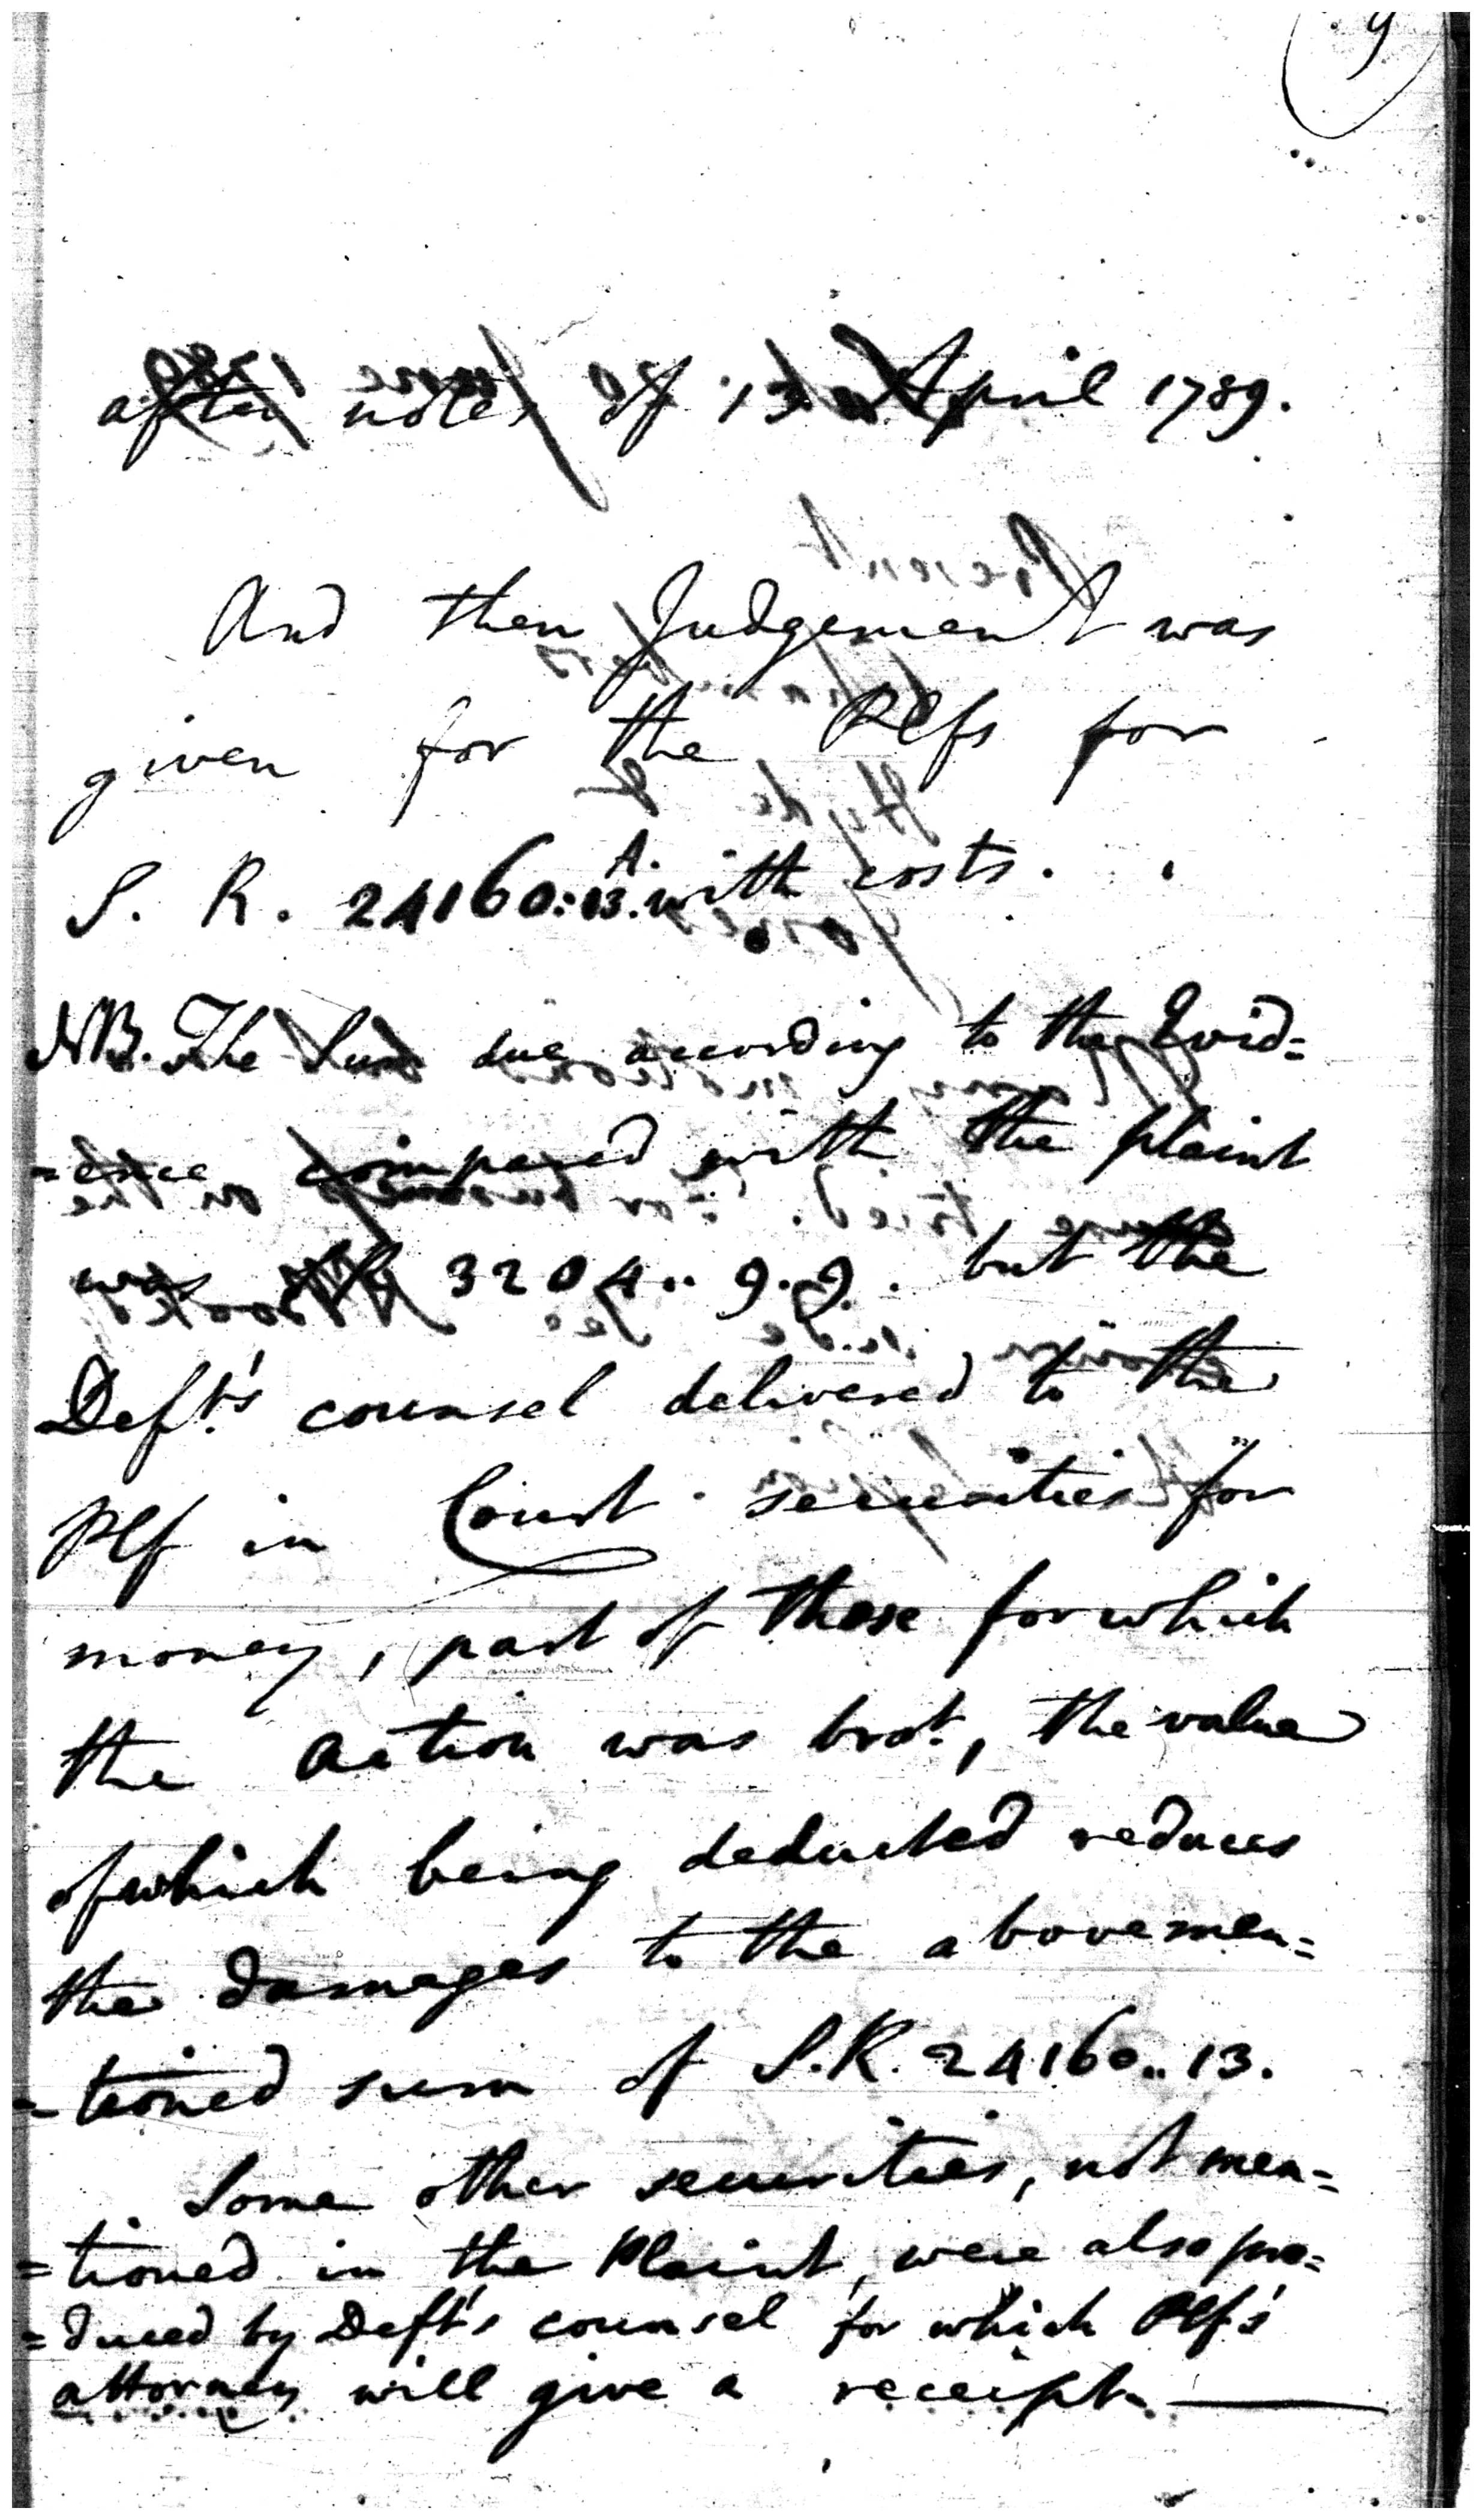 after notes of 13 April 1789.
And then Judgement was
given for the Plfs for
S. R. 24160:13. A. with costs.
NB. The Sum due according to the Evid=
=ence compared with the plaint
was 3204..9.9. but the
Deft's counsel delivered to the
Plf in Court securities for
money, part of those for which
the action was brot., the value
of which being deducted reduces
the damages to the abovemen=
=tioned sum of S.R. 24160..13.
Some other securities, not men=
=tioned in the Plaint, were also pro=
=duced by Deft's counsel for which Plf's
attorney will give a receipt.